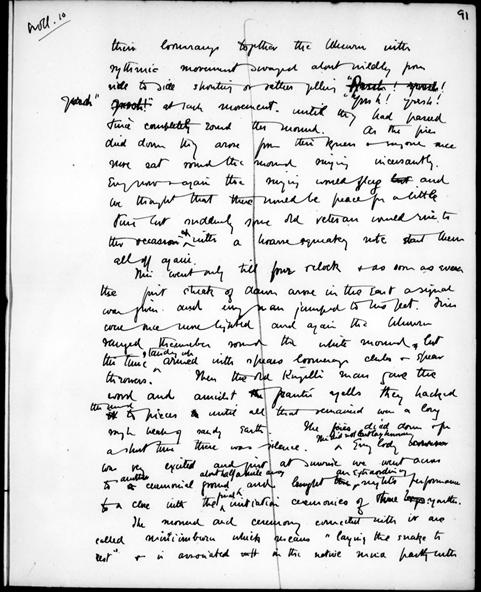 Woll. 10
91
their boomerangs together the Uluuru with
rythmic movement swayed about wildly from
side to side shouting or rather yelling "Yrrsh! yrrsh!
"Yrrsh! yrrsh!
yrrsh" at each movement. until they had passed
twice completely round the mound. As the fires
died down they arose from their knees & once
more sat round the mound singing incessantly.
Every now & again the singing would flag and
we thought that there would be peace for a little
time but suddenly some old veteran would rise to
the occasion & with a hoarse squeaky note start them
all off again.
This went only till four oclock & as soon as ever
the first streak of dawn arose in the East a signal
was given and every man jumped to his feet. Fires
were once more lighted and again the Uluuru
ranged themselves round the white mound, but
this time standing up armed with spears boomerangs clubs & spear
throwers. Then the old Kingilli man gave the
word and amidst frantic yells they hacked
the mound to pieces until all that remained was a long
rough heap sandy Earth. The fires died down & for
a short time there was silence. Every body
was very excited and just at sunrise we went across
to another ceremonial ground about half a mile away and brought an extraordinary nights performance
to a close with the final initiation ceremonies of three youths.
The mound and ceremony connected with it are
called miniimburu which means "laying the snake to
rest" & is associated with in the native mind partly with